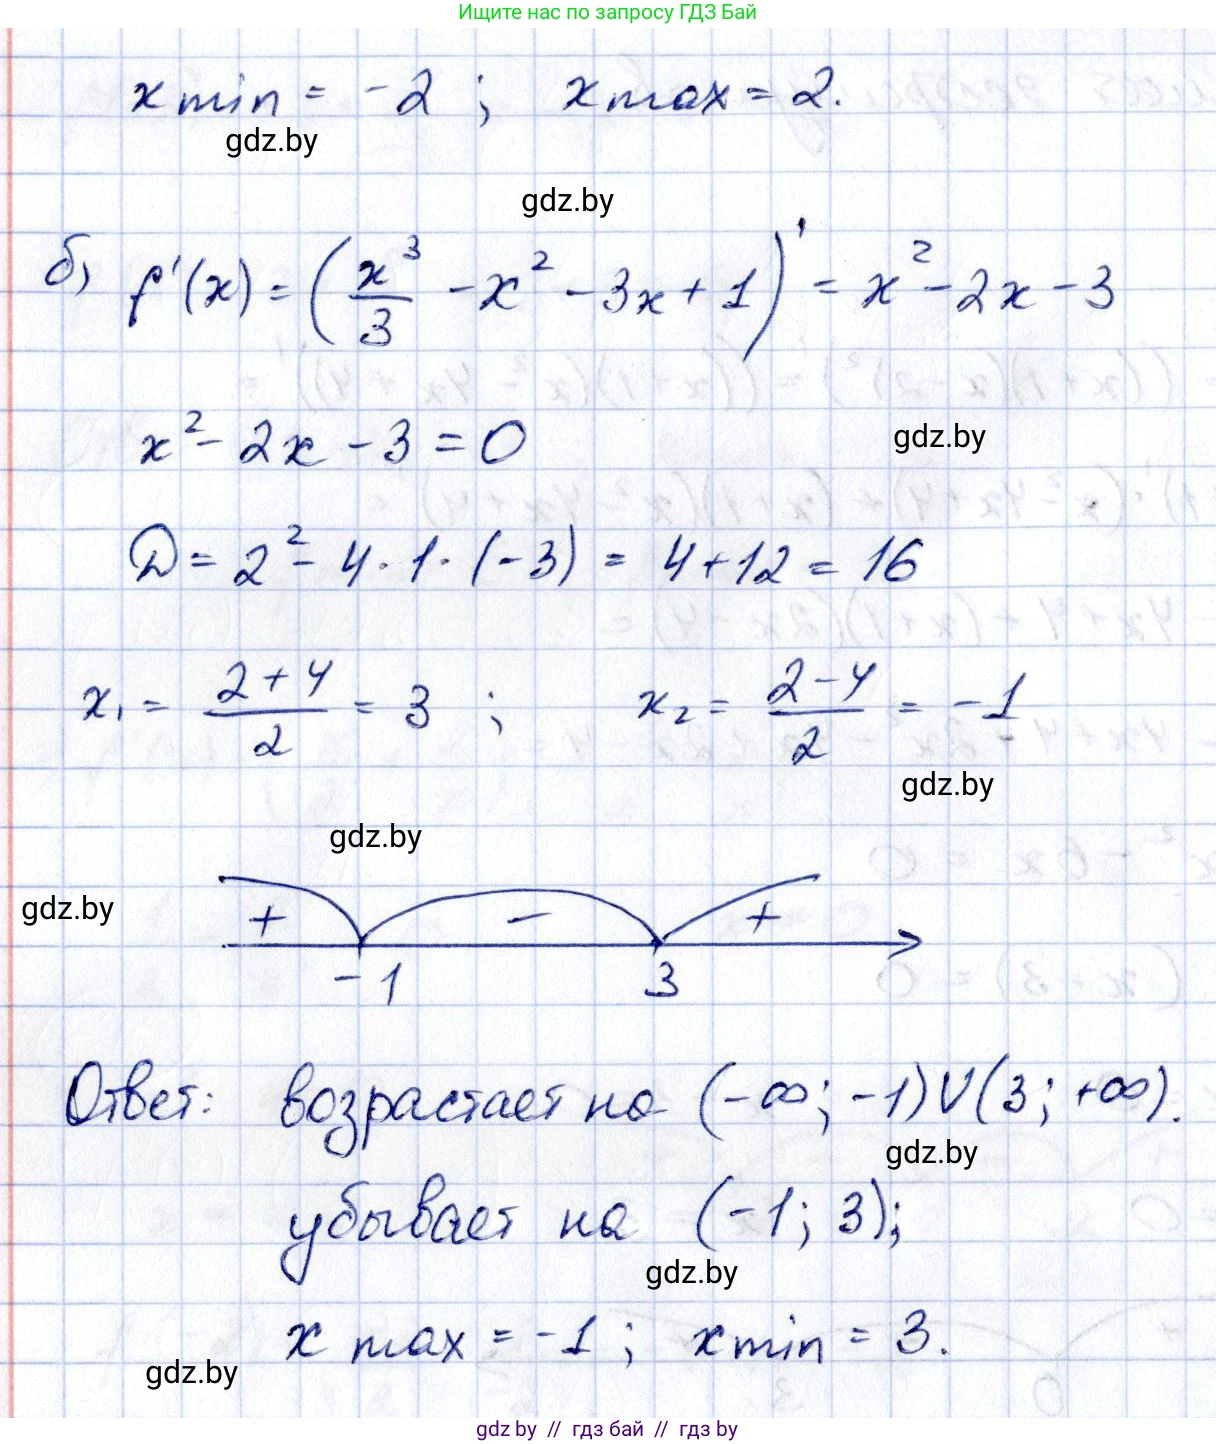 Ищите нас по запросу ГДЗ Бай
x min = -2 ; x max = 2.
gdz.by
gdz.by
б) f'(x) = (x³/3 - x² - 3x + 1)' = x² - 2x - 3
x² - 2x - 3 = 0
gdz.by
D = 2² - 4 · 1 · (-3) = 4 + 12 = 16
x₁ = (2+4)/2 = 3 ; x₂ = (2-4)/2 = -1
gdz.by
gdz.by
gdz.by
+ - +
-1 3
Ответ: возрастает на (-∞; -1) U (3; +∞).
gdz.by
убывает на (-1; 3);
gdz.by
x max = -1 ; x min = 3.
gdz.by
gdz by // гдз бай // гдз by